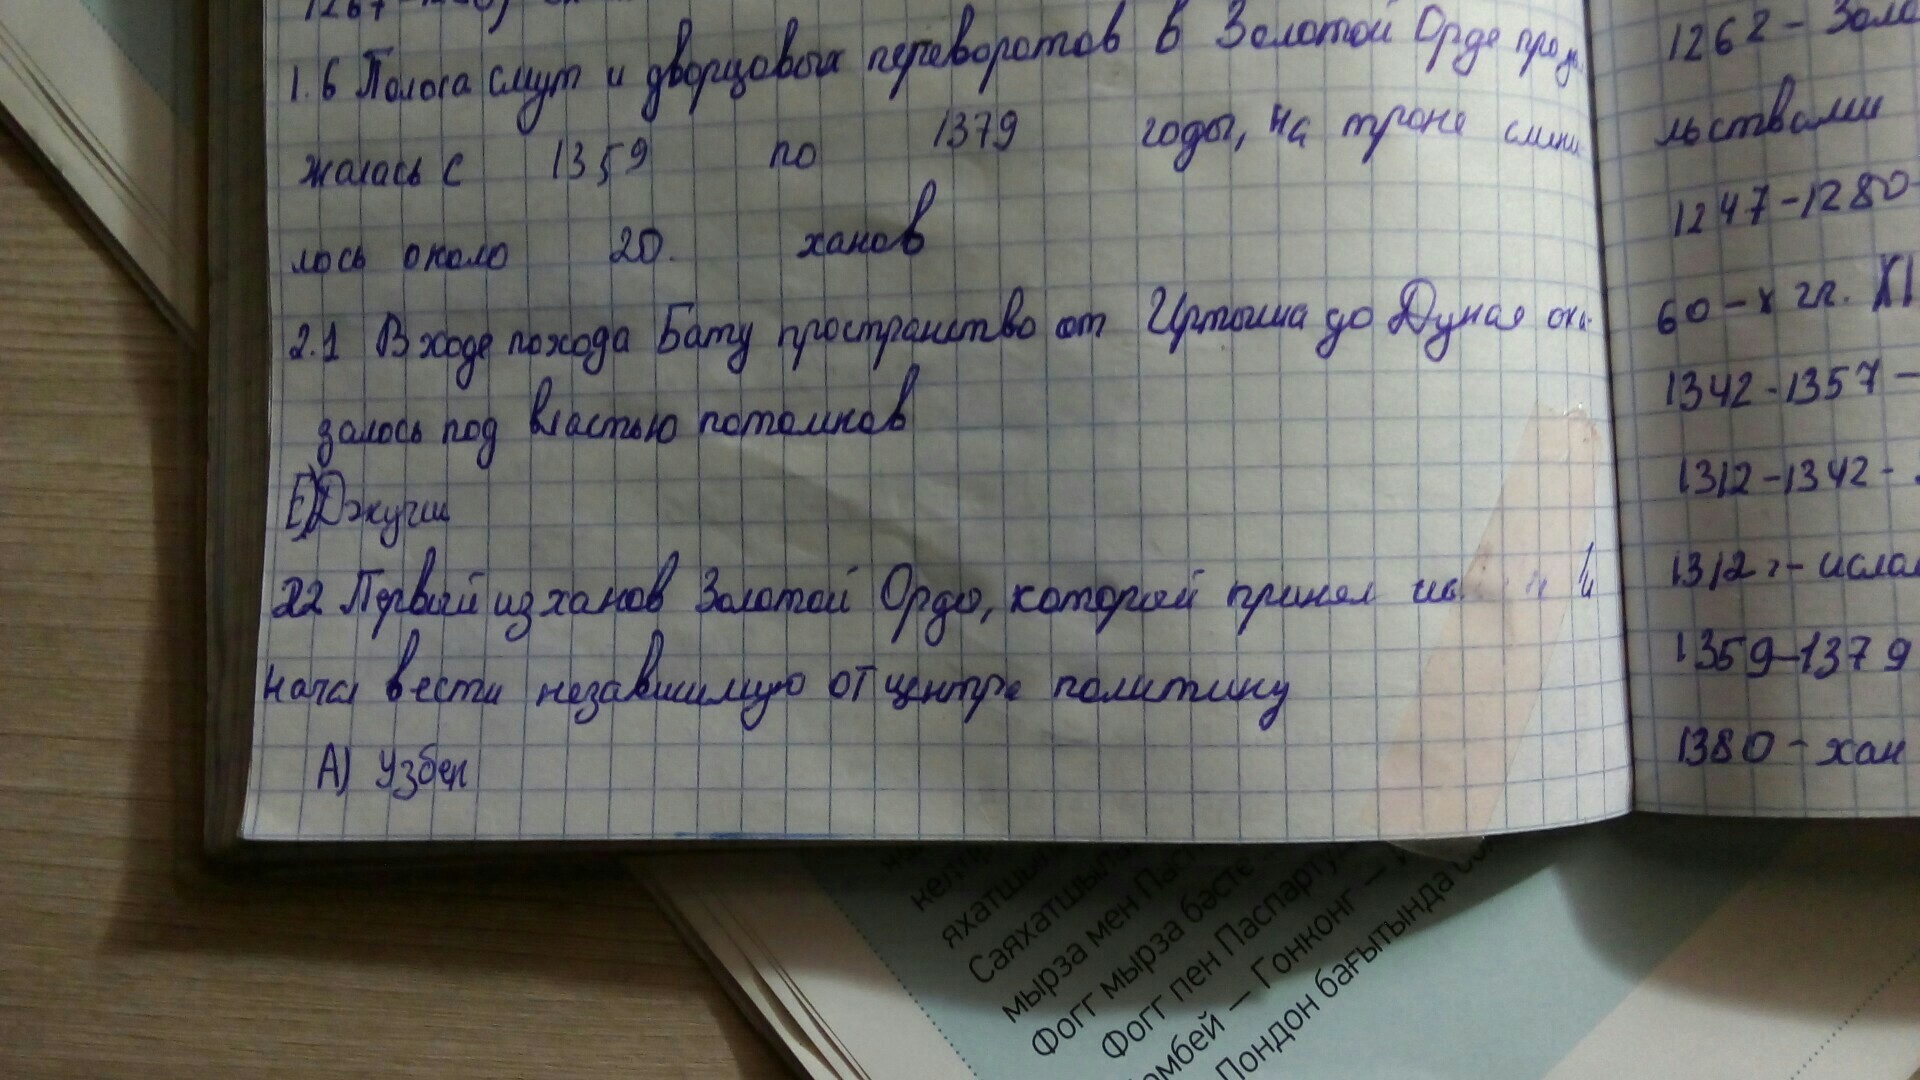 1.6 Полоса смут и дворцовых переворотов в Золотой Орде продо
жалась с 1359 по 1379 годы, на троне смени
лось около 20. ханов
2.1 В ходе похода Бату пространство от Иртыша до Дуная ока-
залось под властью потомков
Е) Джучи
2.2 Первый из ханов Золотой Орды, который принял и
начал вести независимую от центра политику
А) Узбек
1262 - Золо
льствами
1247-1280-
60-х гг. XI
1342-1357-
1312-1342-
1312г- ислам
1359-1379
1380 - хан
келті
яхатшы
Саяхатшыл
мырза мен Пас
Фогг мырза басте
Фогг пен Паспарту
омбей — Гонконг —
Лондон бағытында